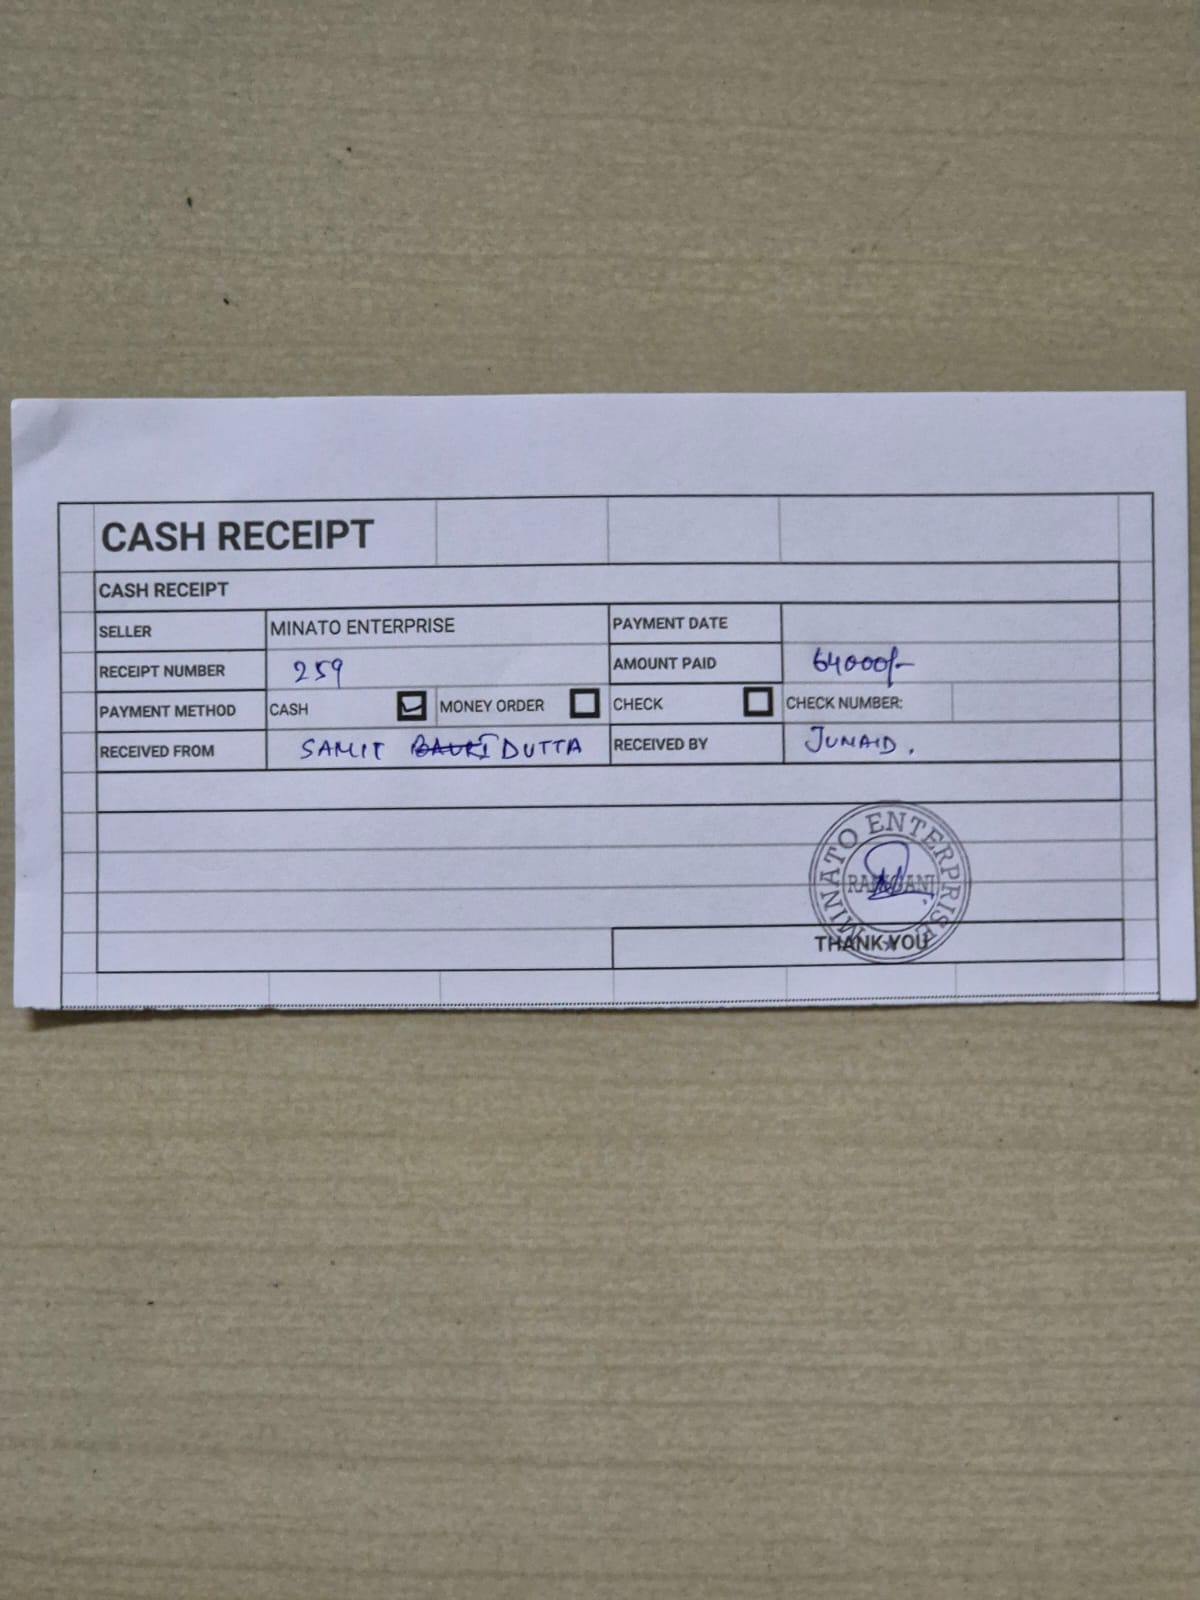 CASH RECEIPT
CASH RECEIPT
SELLER MINATO ENTERPRISE PAYMENT DATE
RECEIPT NUMBER 259 AMOUNT PAID 64000/-
PAYMENT METHOD CASH MONEY ORDER CHECK CHECK NUMBER:
RECEIVED FROM SAMIT BAURI DUTTA RECEIVED BY JUNAID.
MINATO ENTERPRISE
THANK YOU